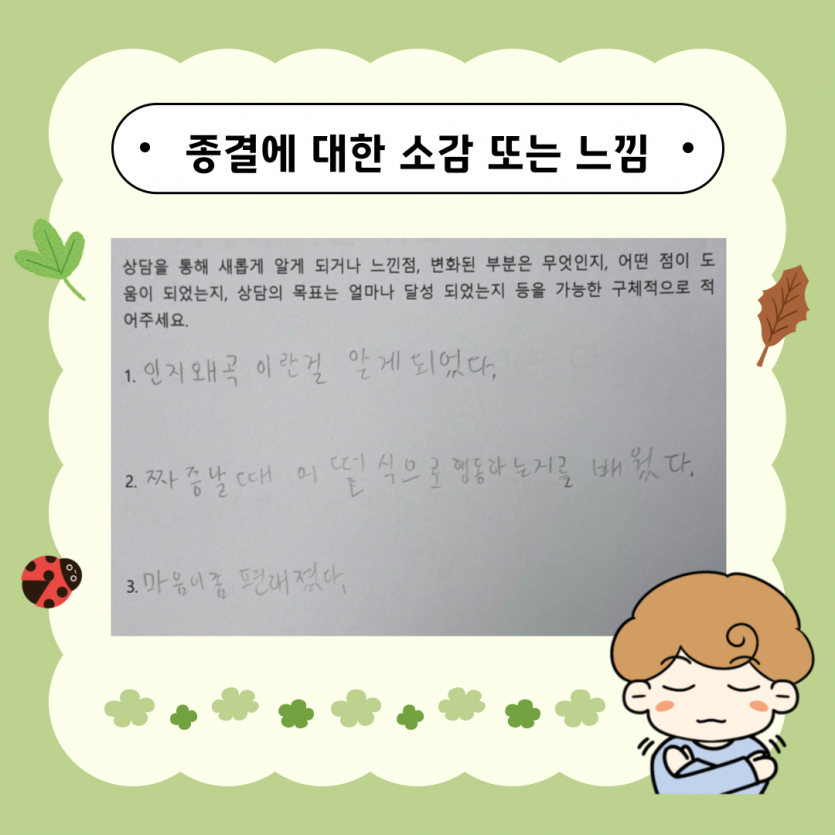 • 종결에 대한 소감 또는 느낌 •
상담을 통해 새롭게 알게 되거나 느낀점, 변화된 부분은 무엇인지, 어떤 점이 도
움이 되었는지, 상담의 목표는 얼마나 달성 되었는지 등을 가능한 구체적으로 적
어주세요.
1. 인지왜곡 이란걸 알게되었다.
2. 짜증날때 어떻 식으로행동하는지를 배웠다.
3. 마음이좀 편해졌다.